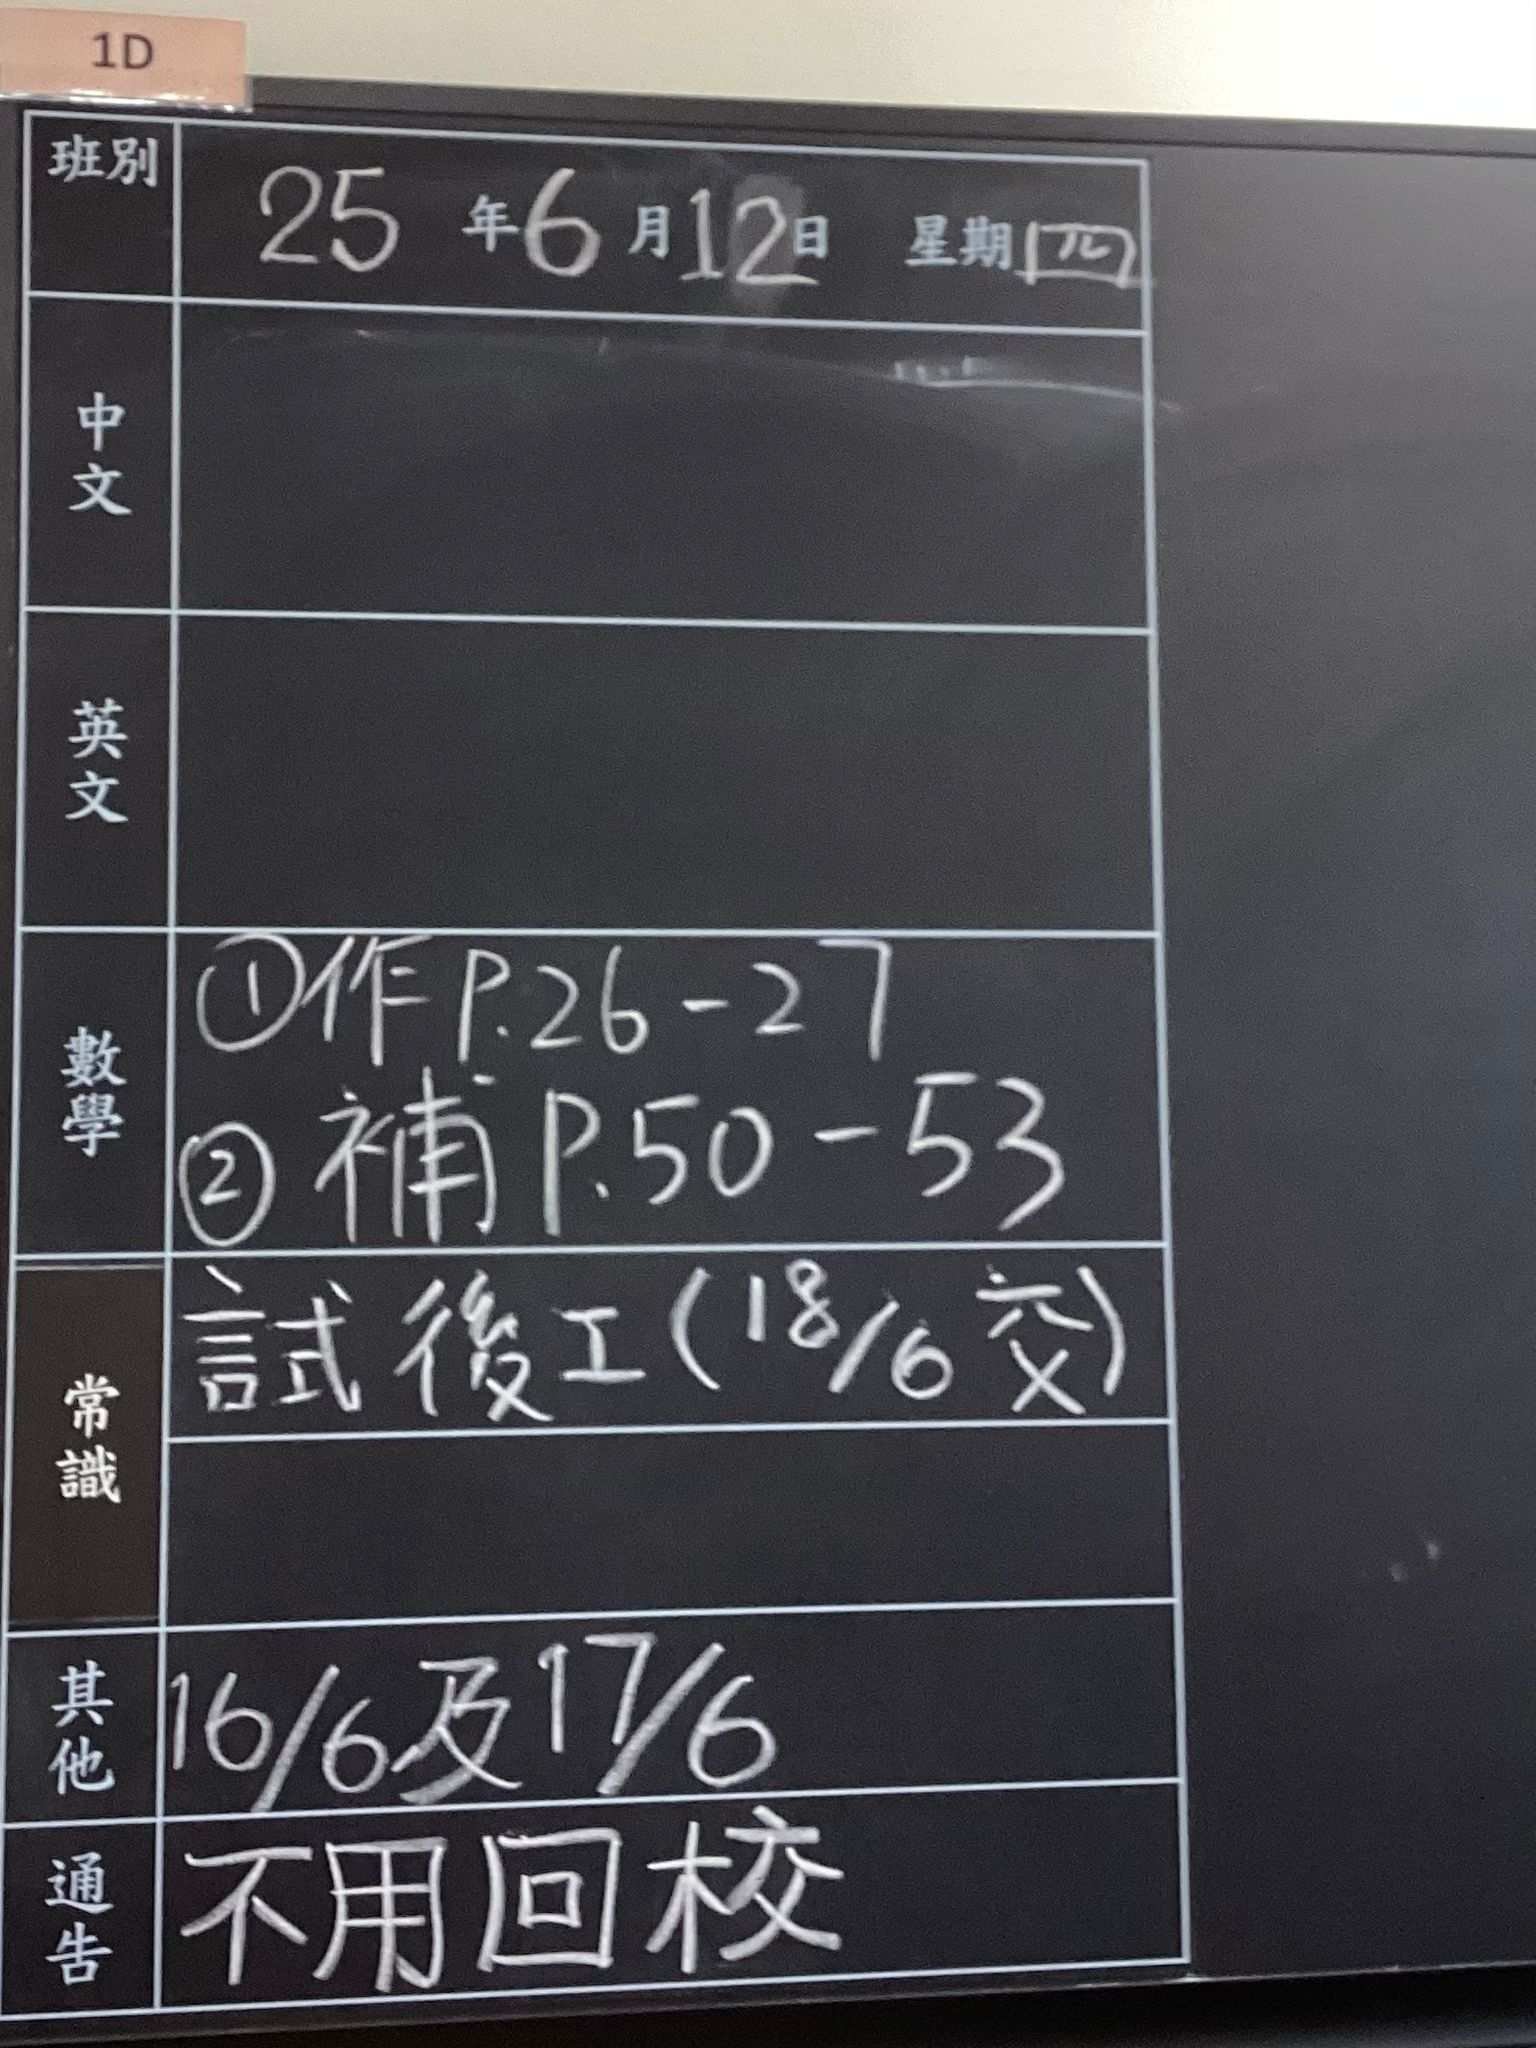 1D
班別
25年6月12日 星期四
中文
英文
數學
①作P.26-27
②補P.50-53
常識
試後工(18/6交)
其他
16/6及17/6
通告
不用回校